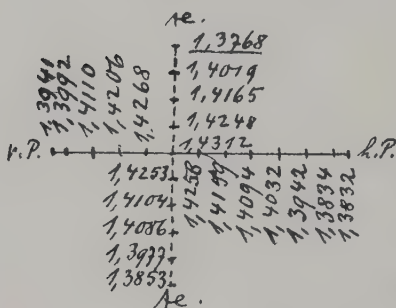 äe.
1,3768
1,4019
1,4165
1,4248
1,4312
1,3941
1,3992
1,4110
1,4206
1,4268
v.P.
h.P.
1,4253
1,4104
1,4086
1,3977
1,3853
1,4258
1,4159
1,4094
1,4032
1,3942
1,3834
1,3832